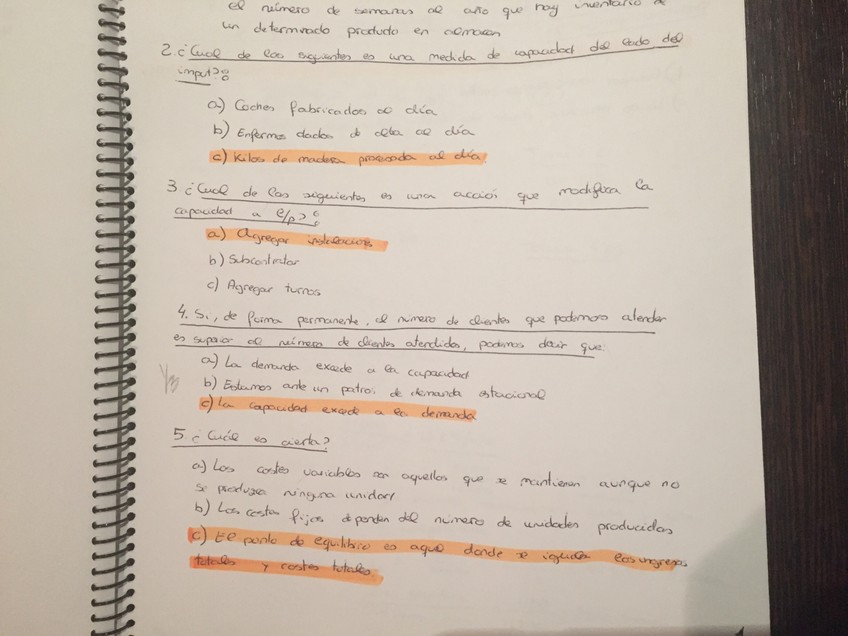 el número de semanas al año que hay inventario de
un determinado producto en almacén
2. ¿Cuál de los siguientes es una medida de capacidad del lado del
input?:
a) Coches fabricados al día
b) Enfermos dados de alta al día
c) Kilos de madera procesada al día.
3. ¿Cuál de las siguientes es una acción que modifica la
capacidad a c/p?:
a) Agregar instalaciones.
b) Subcontratar
c) Agregar turnos
4. Si, de forma permanente, el número de clientes que podemos atender
es superior al número de clientes atendidos, podemos decir que:
a) La demanda excede a la capacidad
b) Estamos ante un patrón de demanda estacional
c) La capacidad excede a la demanda
5 ¿Cuál es cierta?
a) Los costes variables son aquellos que se mantienen aunque no
se produzca ninguna unidad
b) Los costes fijos dependen del número de unidades producidas
c) El punto de equilibrio es aquel donde se iguala los ingresos
totales y costes totales.